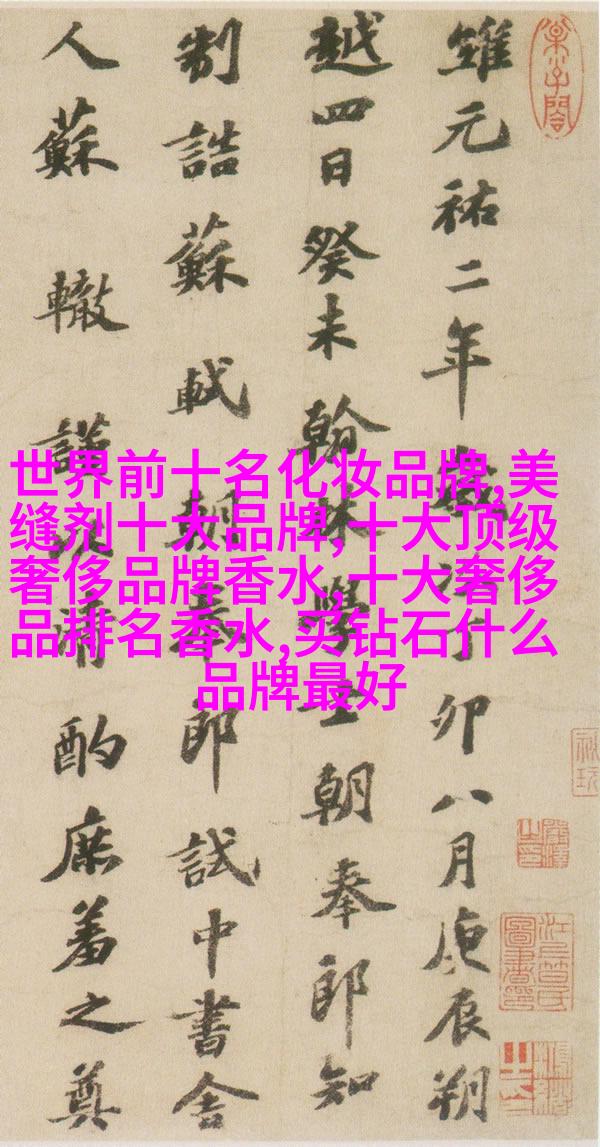 維元祐二年歲次丁卯八月庚辰朔
越四日癸未翰林學士朝奉郎知
制誥蘇軾朝奉郎試中書舍
人蘇轍謹以清酌庶羞之奠
世界前十名化妆品牌,美
缝剂十大品牌,十大顶级
奢侈品牌香水,十大奢侈
品排名香水,买钻石什么
品牌最好